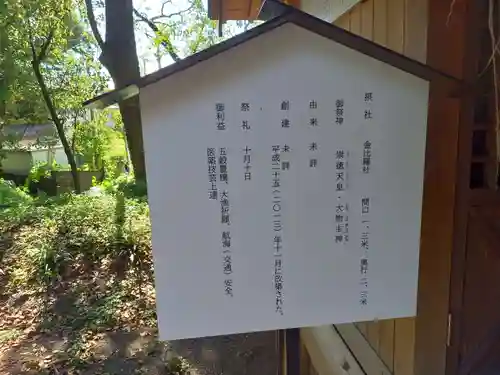 摂社　金比羅社　間口一、三米、奥行二、三米
御祭神　崇徳天皇・大物主神
由来　未詳
創建　未詳
平成二十五(二〇一三)年十一月に改築された。
祭礼　十月十日
御利益　五穀豊穣、大漁祈願、航海(交通)安全、
医薬技芸上達